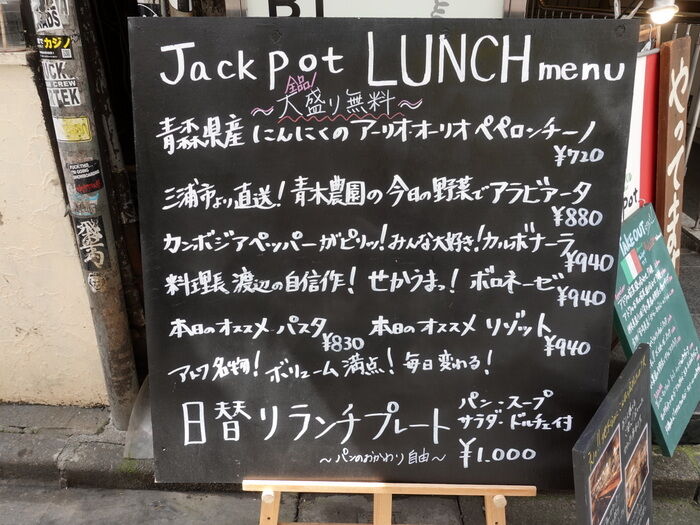 Jackpot LUNCH menu
全品!
～大盛り無料～
青森県産 にんにくの アーリオオーリオ ペペロンチーノ
¥720
三浦市より直送! 青木農園の 今日の野菜で アラビアータ
¥880
カンボジアペッパーがピリッ! みんな大好き! カルボナーラ
¥940
料理長 渡辺の自信作! せかうまっ! ボロネーゼ
¥940
本日のオススメ パスタ 本日のオススメ リゾット
¥830 ¥940
名物! ボリューム満点! 毎日変わる!
日替りランチプレート
パン・スープ
サラダ・ドルチェ付
～パンのおかわり自由～
¥1.000
TAKEOUT
やってます
カジノ